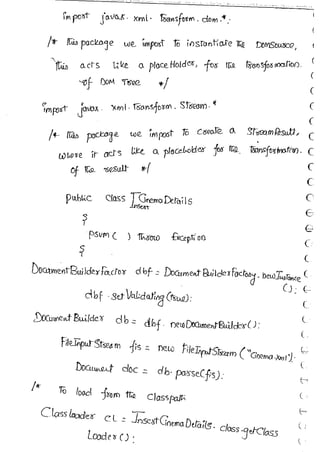 import javax. xml. Transform. dom.*;
/* this package we import to instantiate the DOMSource,
this acts like a placeHolder, for the transformation.
of DOM Tree */
import javax. xml. Transform. Stream. *
/* this package we import to create a StreamResult,
where it acts like a placeholder for the Transformation.
of the result */
public class InsertCinemaDetails
{
psvm ( ) throw Exception
{
DocumentBuilderFactor dbf = DocumentBuilderFactory. newInstance
();
dbf. setValidating (true);
DocumentBuilder db = dbf. newDocumentBuilder();
FileInputStream fis = new FileInputStream ("Cinema.xml");
Document doc = db. parse(fis);
/* To load from the Classpath
Classloader cl = InsertCinemaDetails. class.getClass
Loader();